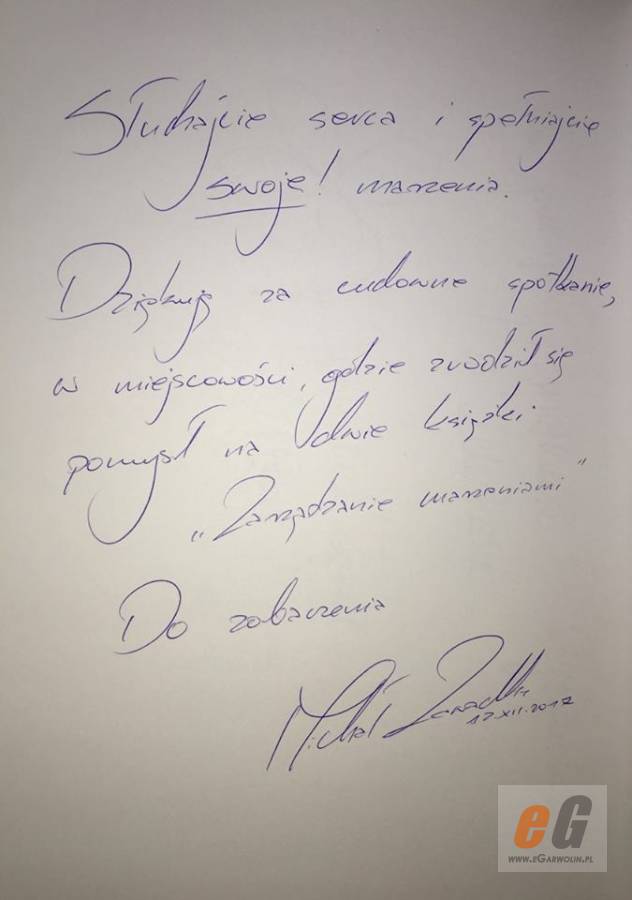 Słuchajcie serca i spełniajcie
swoje! marzenia.
Dziękuję za cudowne spotkanie,
w miejscowości, gdzie zrodził się
pomysł na dwie książki
„Zarządzanie marzeniami”
Do zobaczenia
Michał
12.XII.2017
eG
www.eGarwolin.pl